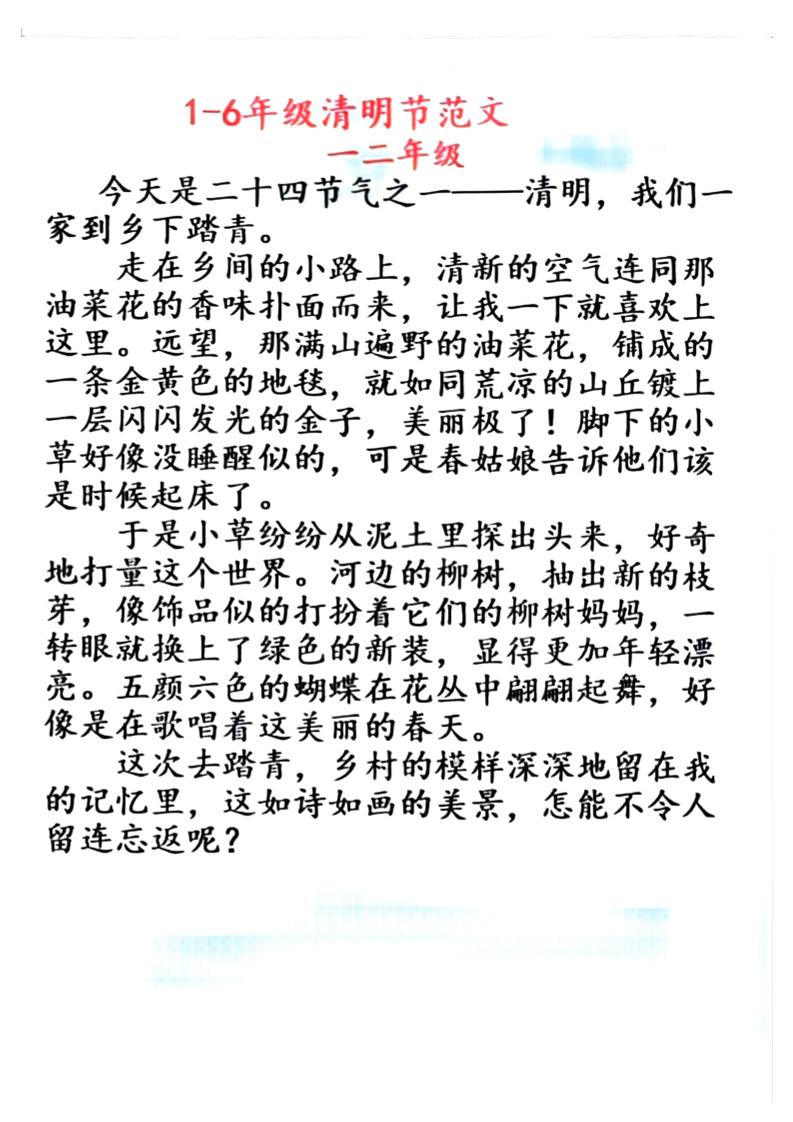 1-6年级清明节范文
一二年级
今天是二十四节气之一——清明，我们一
家到乡下踏青。
走在乡间的小路上，清新的空气连同那
油菜花的香味扑面而来，让我一下就喜欢上
这里。远望，那满山遍野的油菜花，铺成的
一条金黄色的地毯，就如同荒凉的山丘镀上
一层闪闪发光的金子，美丽极了！脚下的小
草好像没睡醒似的，可是春姑娘告诉他们该
是时候起床了。
于是小草纷纷从泥土里探出头来，好奇
地打量这个世界。河边的柳树，抽出新的枝
芽，像饰品似的打扮着它们的柳树妈妈，一
转眼就换上了绿色的新装，显得更加年轻漂
亮。五颜六色的蝴蝶在花丛中翩翩起舞，好
像是在歌唱着这美丽的春天。
这次去踏青，乡村的模样深深地留在我
的记忆里，这如诗如画的美景，怎能不令人
留连忘返呢？